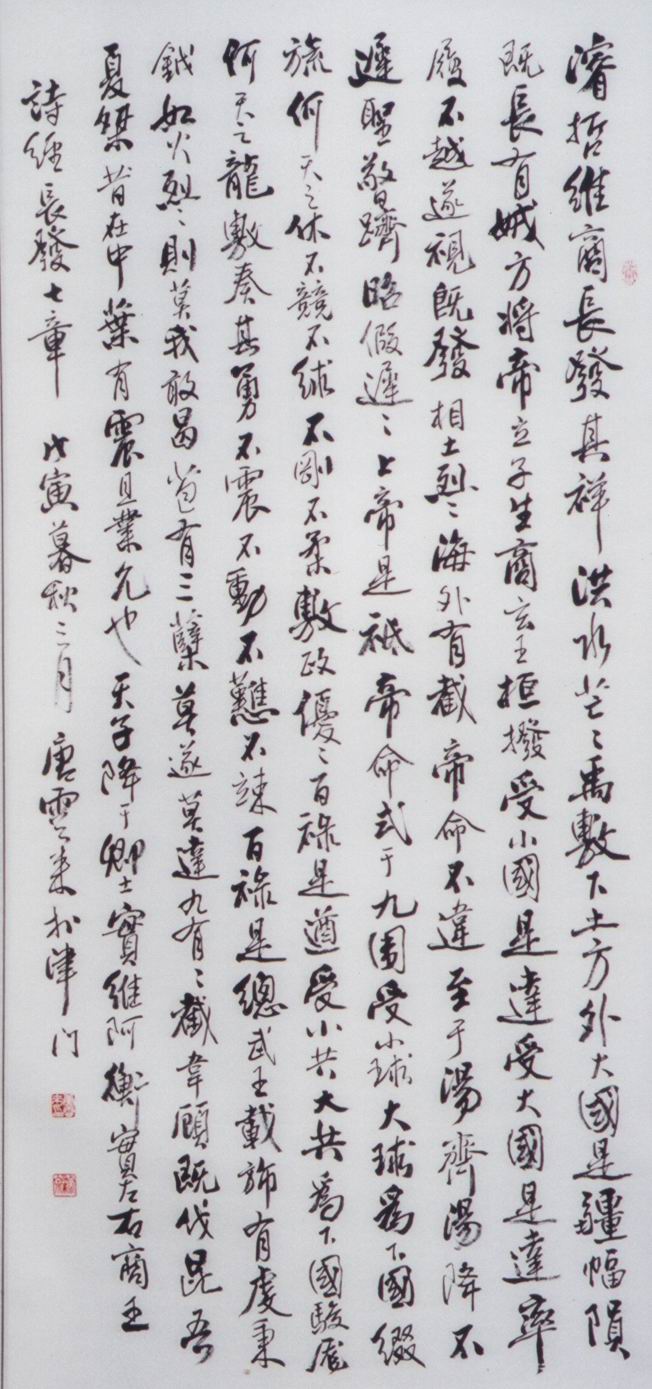 濬哲維商長發其祥洪水芒〻禹敷下土方外大國是疆幅隕
既長有娀方將帝立子生商玄王桓撥受小國是達受大國是達率
履不越遂視既發相土烈〻海外有截帝命不違至于湯齊湯降不
遲聖敬日躋昭假遲〻上帝是祗帝命式于九圍受小球大球為下國綴
旒何天之休不競不絿不剛不柔敷政優〻百祿是遒受小共大共為下國駿厖
何天之龍敷奏其勇不震不動不戁不竦百祿是總武王載斾有虔秉
鉞如火烈〻則莫我敢曷苞有三蘗莫遂莫達九有〻截韋顧既伐昆吾
夏桀昔在中葉有震且業允也天子降于卿士實維阿衡實左右商王
詩經長發七章 戊寅暮秋三月 唐雲來於津門